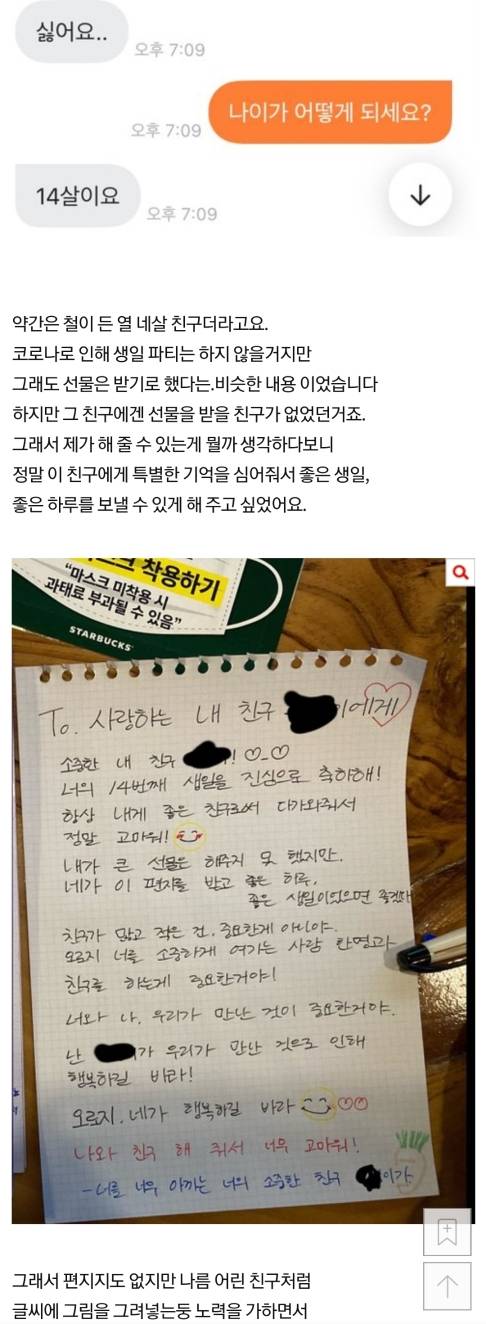 싫어요..
오후 7:09
나이가 어떻게 되세요?
오후 7:09
14살이요
오후 7:09
약간은 철이 든 열 네살 친구더라고요.
코로나로 인해 생일 파티는 하지 않을거지만
그래도 선물은 받기로 했다는.비슷한 내용 이었습니다
하지만 그 친구에겐 선물을 받을 친구가 없었던거죠.
그래서 제가 해 줄 수 있는게 뭘까 생각하다보니
정말 이 친구에게 특별한 기억을 심어줘서 좋은 생일,
좋은 하루를 보낼 수 있게 해 주고 싶었어요.
착용하기
“마스크 미착용 시
과태료 부과될 수 있음”
STARBUCKS
To. 사랑하는 내 친구 이에게
소중한 내 친구 !
너의 14번째 생일을 진심으로 축하해!
항상 내게 좋은 친구로써 다가와줘서
정말 고마워!
내가 큰 선물은 해주지 못 했지만.
네가 이 편지를 받고 좋은 하루,
좋은 생일이었으면 좋겠다
친구가 많고 적은 건, 중요한게 아니야.
오로지 너를 소중하게 여기는 사람 한명과
친구를 하는게 중요한거야!
너와 나, 우리가 만난 것이 중요한거야.
난 가 우리가 만난 것으로 인해
행복하길 바라!
오로지. 네가 행복하길 바라
나와 친구 해 줘서 너무 고마워!
-너를 너무 아끼는 너의 소중한 친구 이가
그래서 편지지도 없지만 나름 어린 친구처럼
글씨에 그림을 그려넣는둥 노력을 가하면서